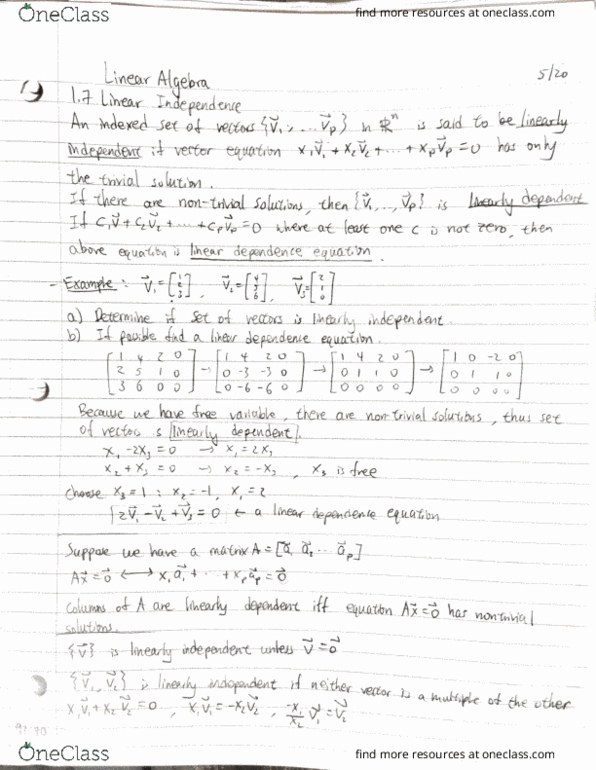 OneClass
find more resources at oneclass.com
Linear Algebra
5/20
1.7 Linear Independence
An indexed set of vectors {v⃗₁, ... v⃗ₚ} in ℝⁿ is said to be linearly
independent if vector equation x₁v⃗₁ + x₂v⃗₂ + ... + xₚv⃗ₚ = 0 has only
the trivial solution.
If there are non-trivial solutions, then {v⃗₁, ..., v⃗ₚ} is linearly dependent
If c₁v⃗ + c₂v⃗₂ + ... + cₚv⃗ₚ = 0 where at least one c is not zero, then
above equation is linear dependence equation.
- Example: v⃗₁ = [1 2 3], v⃗₂ = [4 5 6], v⃗₃ = [2 1 0]
a) Determine if set of vectors is linearly independent.
b) If possible find a linear dependence equation.
[1 4 2 0] → [1 4 2 0] → [1 4 2 0] → [1 0 -2 0]
[2 5 1 0] [0 -3 -3 0] [0 1 1 0] [0 1 1 0]
[3 6 0 0] [0 -6 -6 0] [0 0 0 0] [0 0 0 0]
Because we have free variable, there are non-trivial solutions, thus set
of vectors is linearly dependent.
x₁ - 2x₃ = 0 → x₁ = 2x₃
x₂ + x₃ = 0 → x₂ = -x₃, x₃ is free
Choose x₃ = 1 : x₂ = -1, x₁ = 2
2v⃗₁ - v⃗₂ + v⃗₃ = 0 ← a linear dependence equation
Suppose we have a matrix A = [a⃗₁ a⃗₂ ... a⃗ₚ]
Ax⃗ = 0⃗ ⟷ x₁a⃗₁ + ... + xₚa⃗ₚ = 0⃗
Columns of A are linearly dependent iff equation Ax⃗ = 0⃗ has nontrivial
solutions.
{v⃗} is linearly independent unless v⃗ = 0⃗
{v⃗₁, v⃗₂} is linearly independent if neither vector is a multiple of the other
x₁v⃗₁ + x₂v⃗₂ = 0, x₁v⃗₁ = -x₂v⃗₂, -x₁/x₂ v⃗₁ = v⃗₂
OneClass
find more resources at oneclass.com